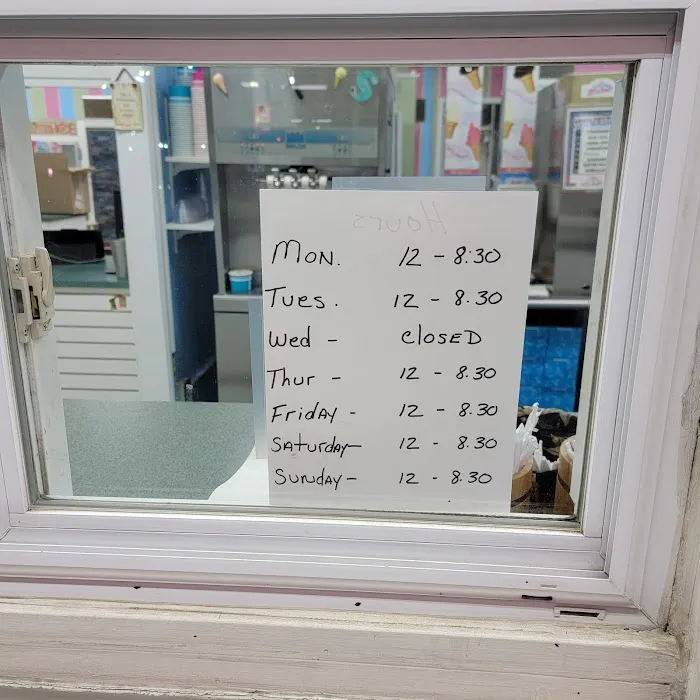 Hours
Mon. 12 - 8:30
Tues. 12 - 8.30
Wed - closed
Thur - 12 - 8.30
Friday - 12 - 8.30
Saturday- 12 - 8.30
Sunday- 12 - 8.30